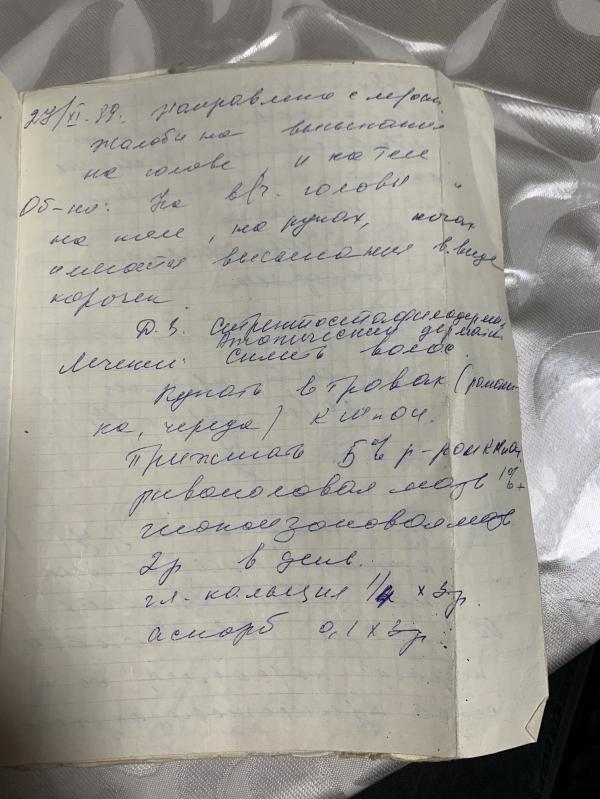 27/XI-89. Направлена с
Жалобы на высыпания
на голове и на теле
Об-но: На в/ч. головы
на теле, на руках, ногах
имеются высыпания в виде
корочек
Д.З. Стрептостафилодермия
Атопический дермат
Лечение: Снять волос.
Купать в травах (ромаш-
ка, череда) KMnO4.
Прижигать 5% р-ром KMnO4
риваноловая мазь 1% +
мазь
2р в день.
гл. кальция 1/4 x 3 р.
аскорб 0,1 x 3 р.